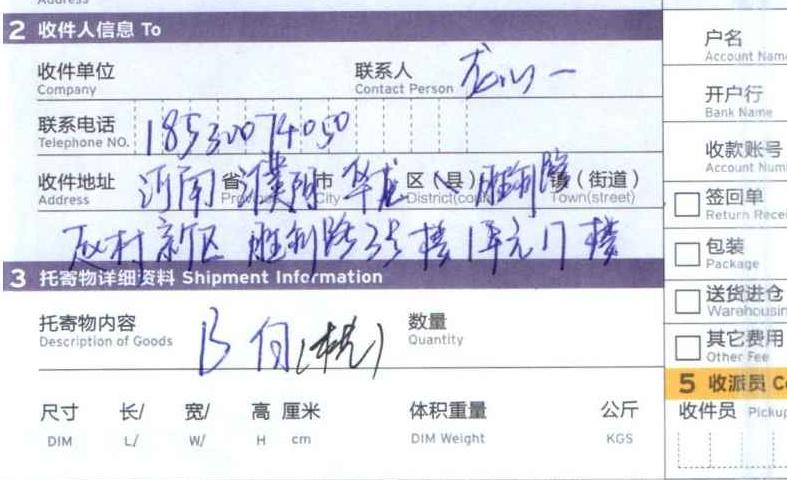 Address
2 收件人信息 To
收件单位 联系人 龙心一
Company Contact Person
联系电话 18530074050
Telephone NO.
收件地址 河南 省 濮阳 市 华龙 区(县) 胜利路 镇(街道)
Address Province City District(county) Town(street)
赵村新区 胜利路3号楼1单元17楼
3 托寄物详细资料 Shipment Information
托寄物内容 数量
Description of Goods Quantity
尺寸 长/ 宽/ 高 厘米 体积重量 公斤
DIM L/ W/ H cm DIM Weight KGS
户名
Account Name
开户行
Bank Name
收款账号
Account Num
签回单
Return Recei
包装
Package
送货进仓
Warehousin
其它费用
Other Fee
5 收派员 Co
收件员 Pickup